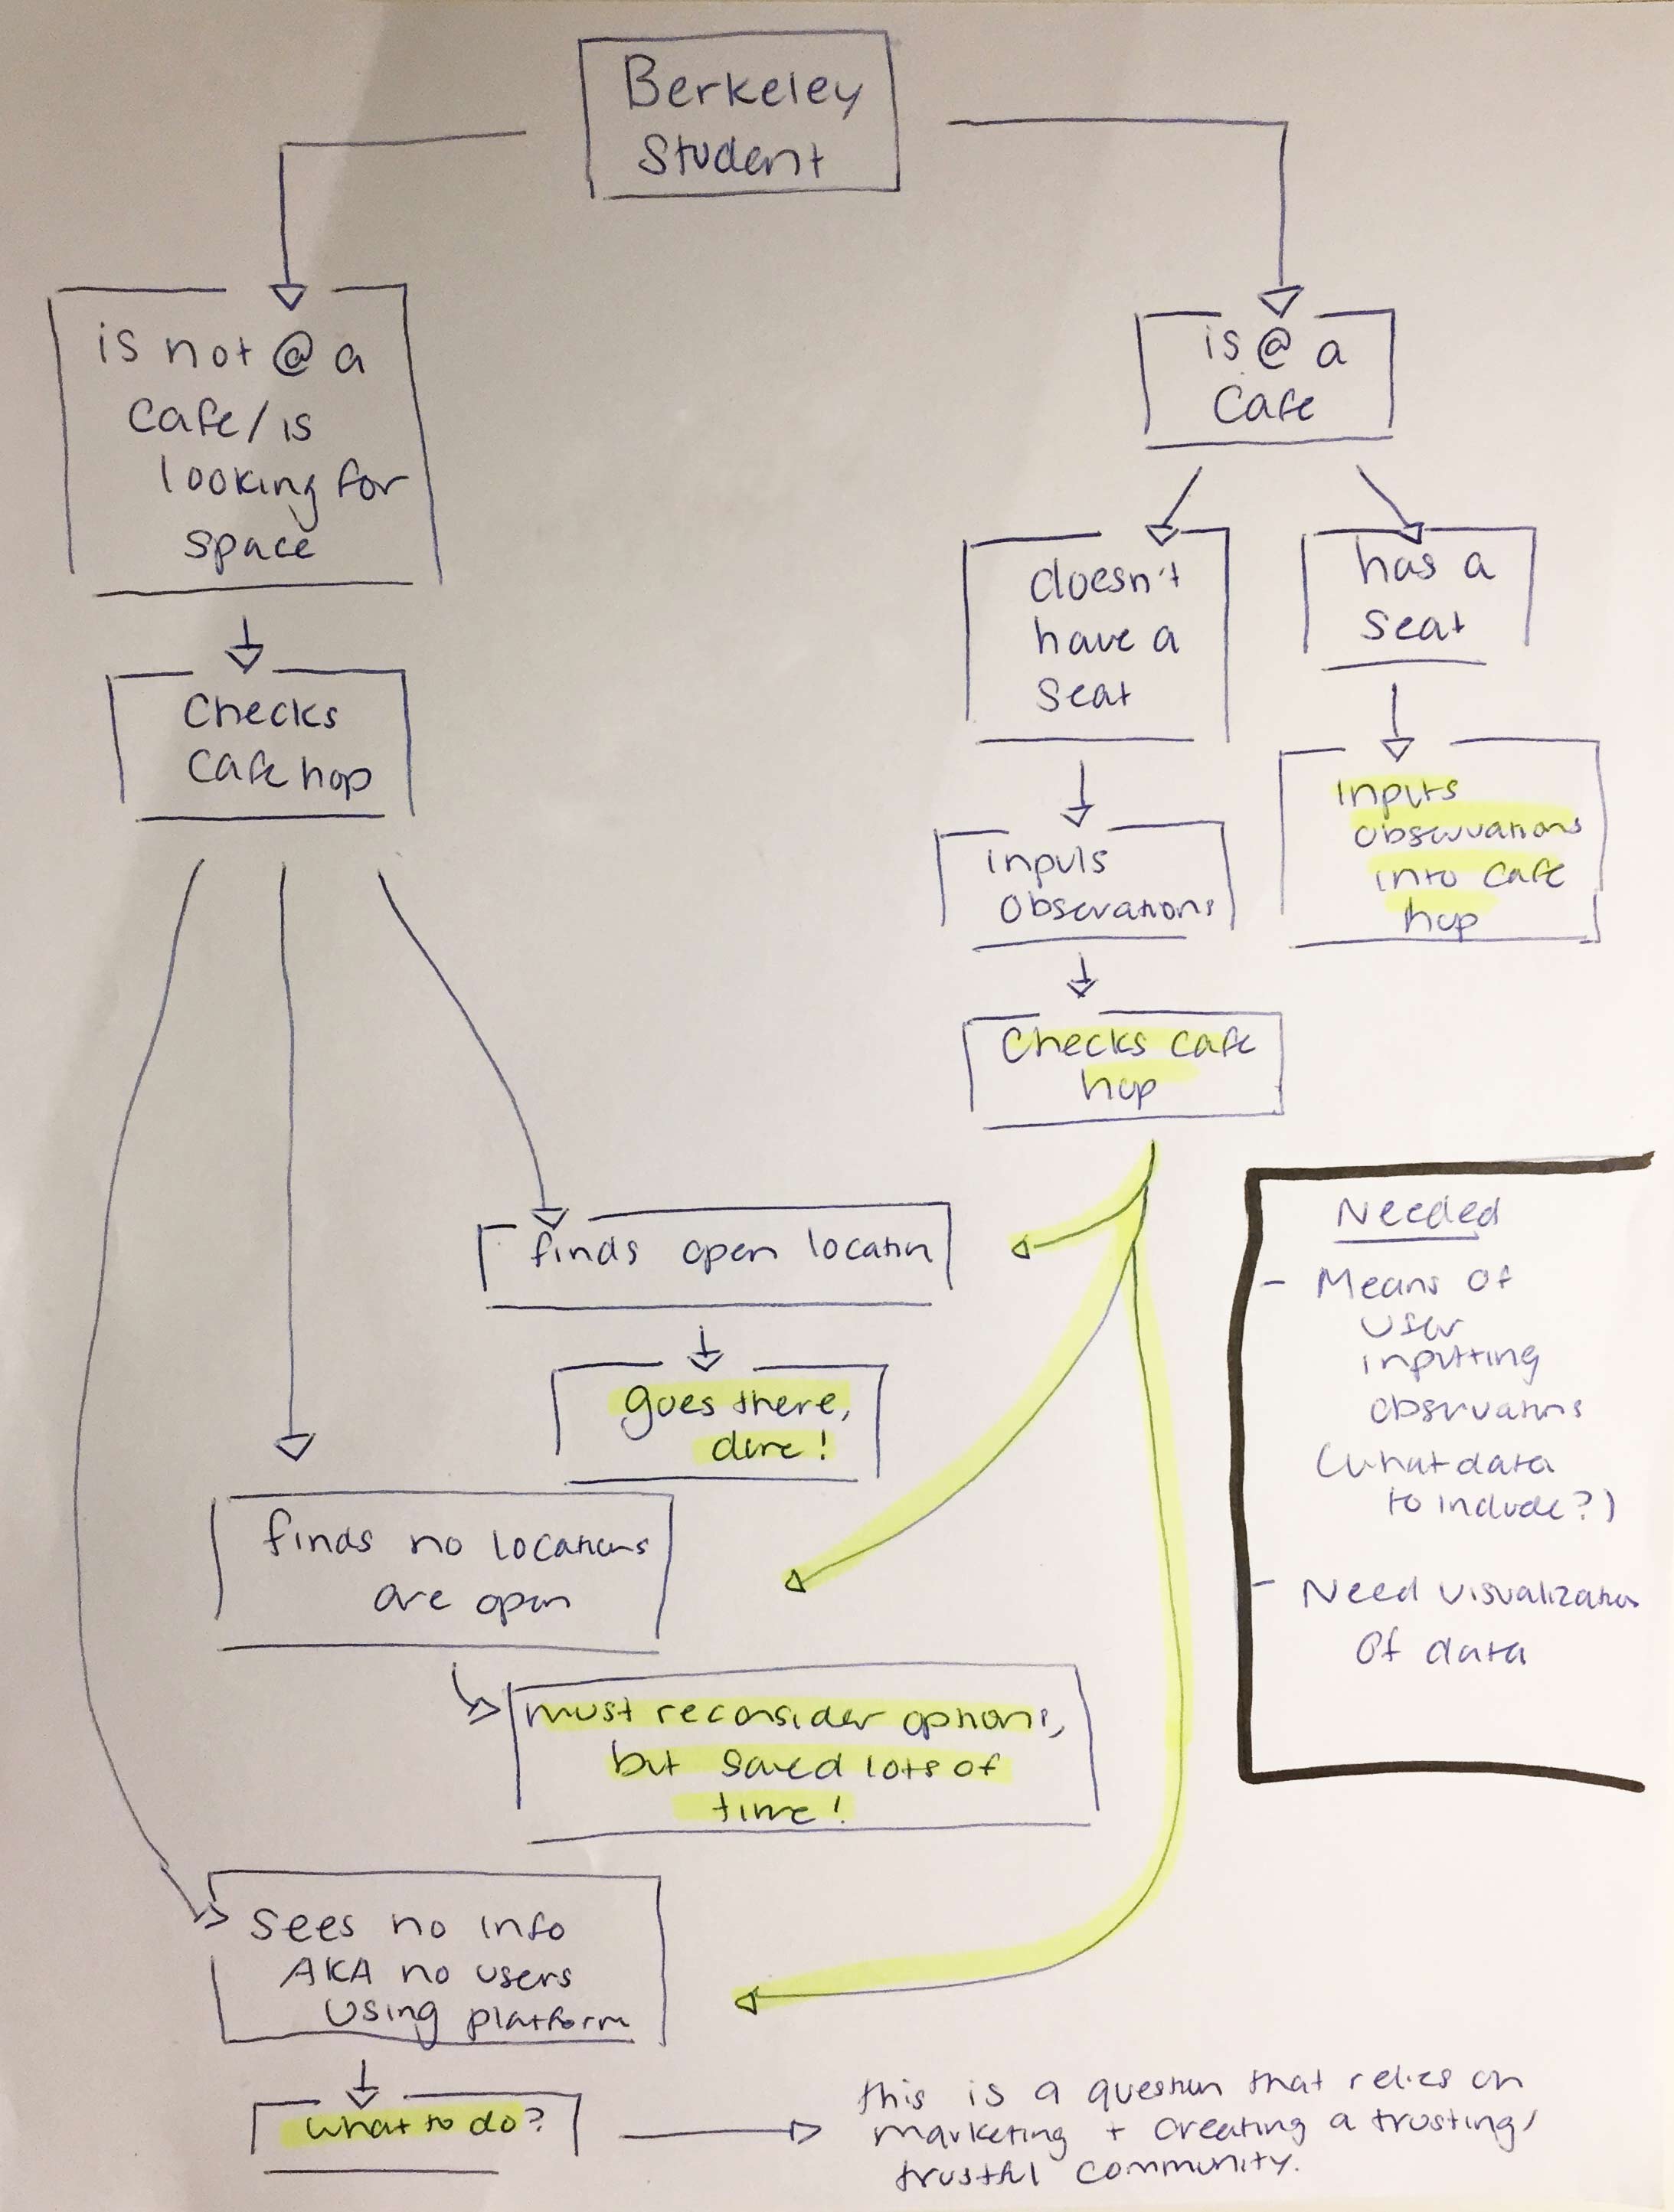 Berkeley
Student
is not @ a
cafe/is
looking for
space
Checks
Cafe hop
is @ a
Cafe
doesn't
have a
seat
has a
seat
inputs
observations
inputs
observations
into cafe
hop
Checks cafe
hop
finds open location
goes there,
done!
finds no locations
are open
must reconsider options,
but saved lots of
time!
sees no info
AKA no users
using platform
what to do?
this is a question that relies on
marketing + creating a trusting,
trustful community.
Needed
- Means of
user
inputting
observations
(what data
to include?)
- Need visualization
of data